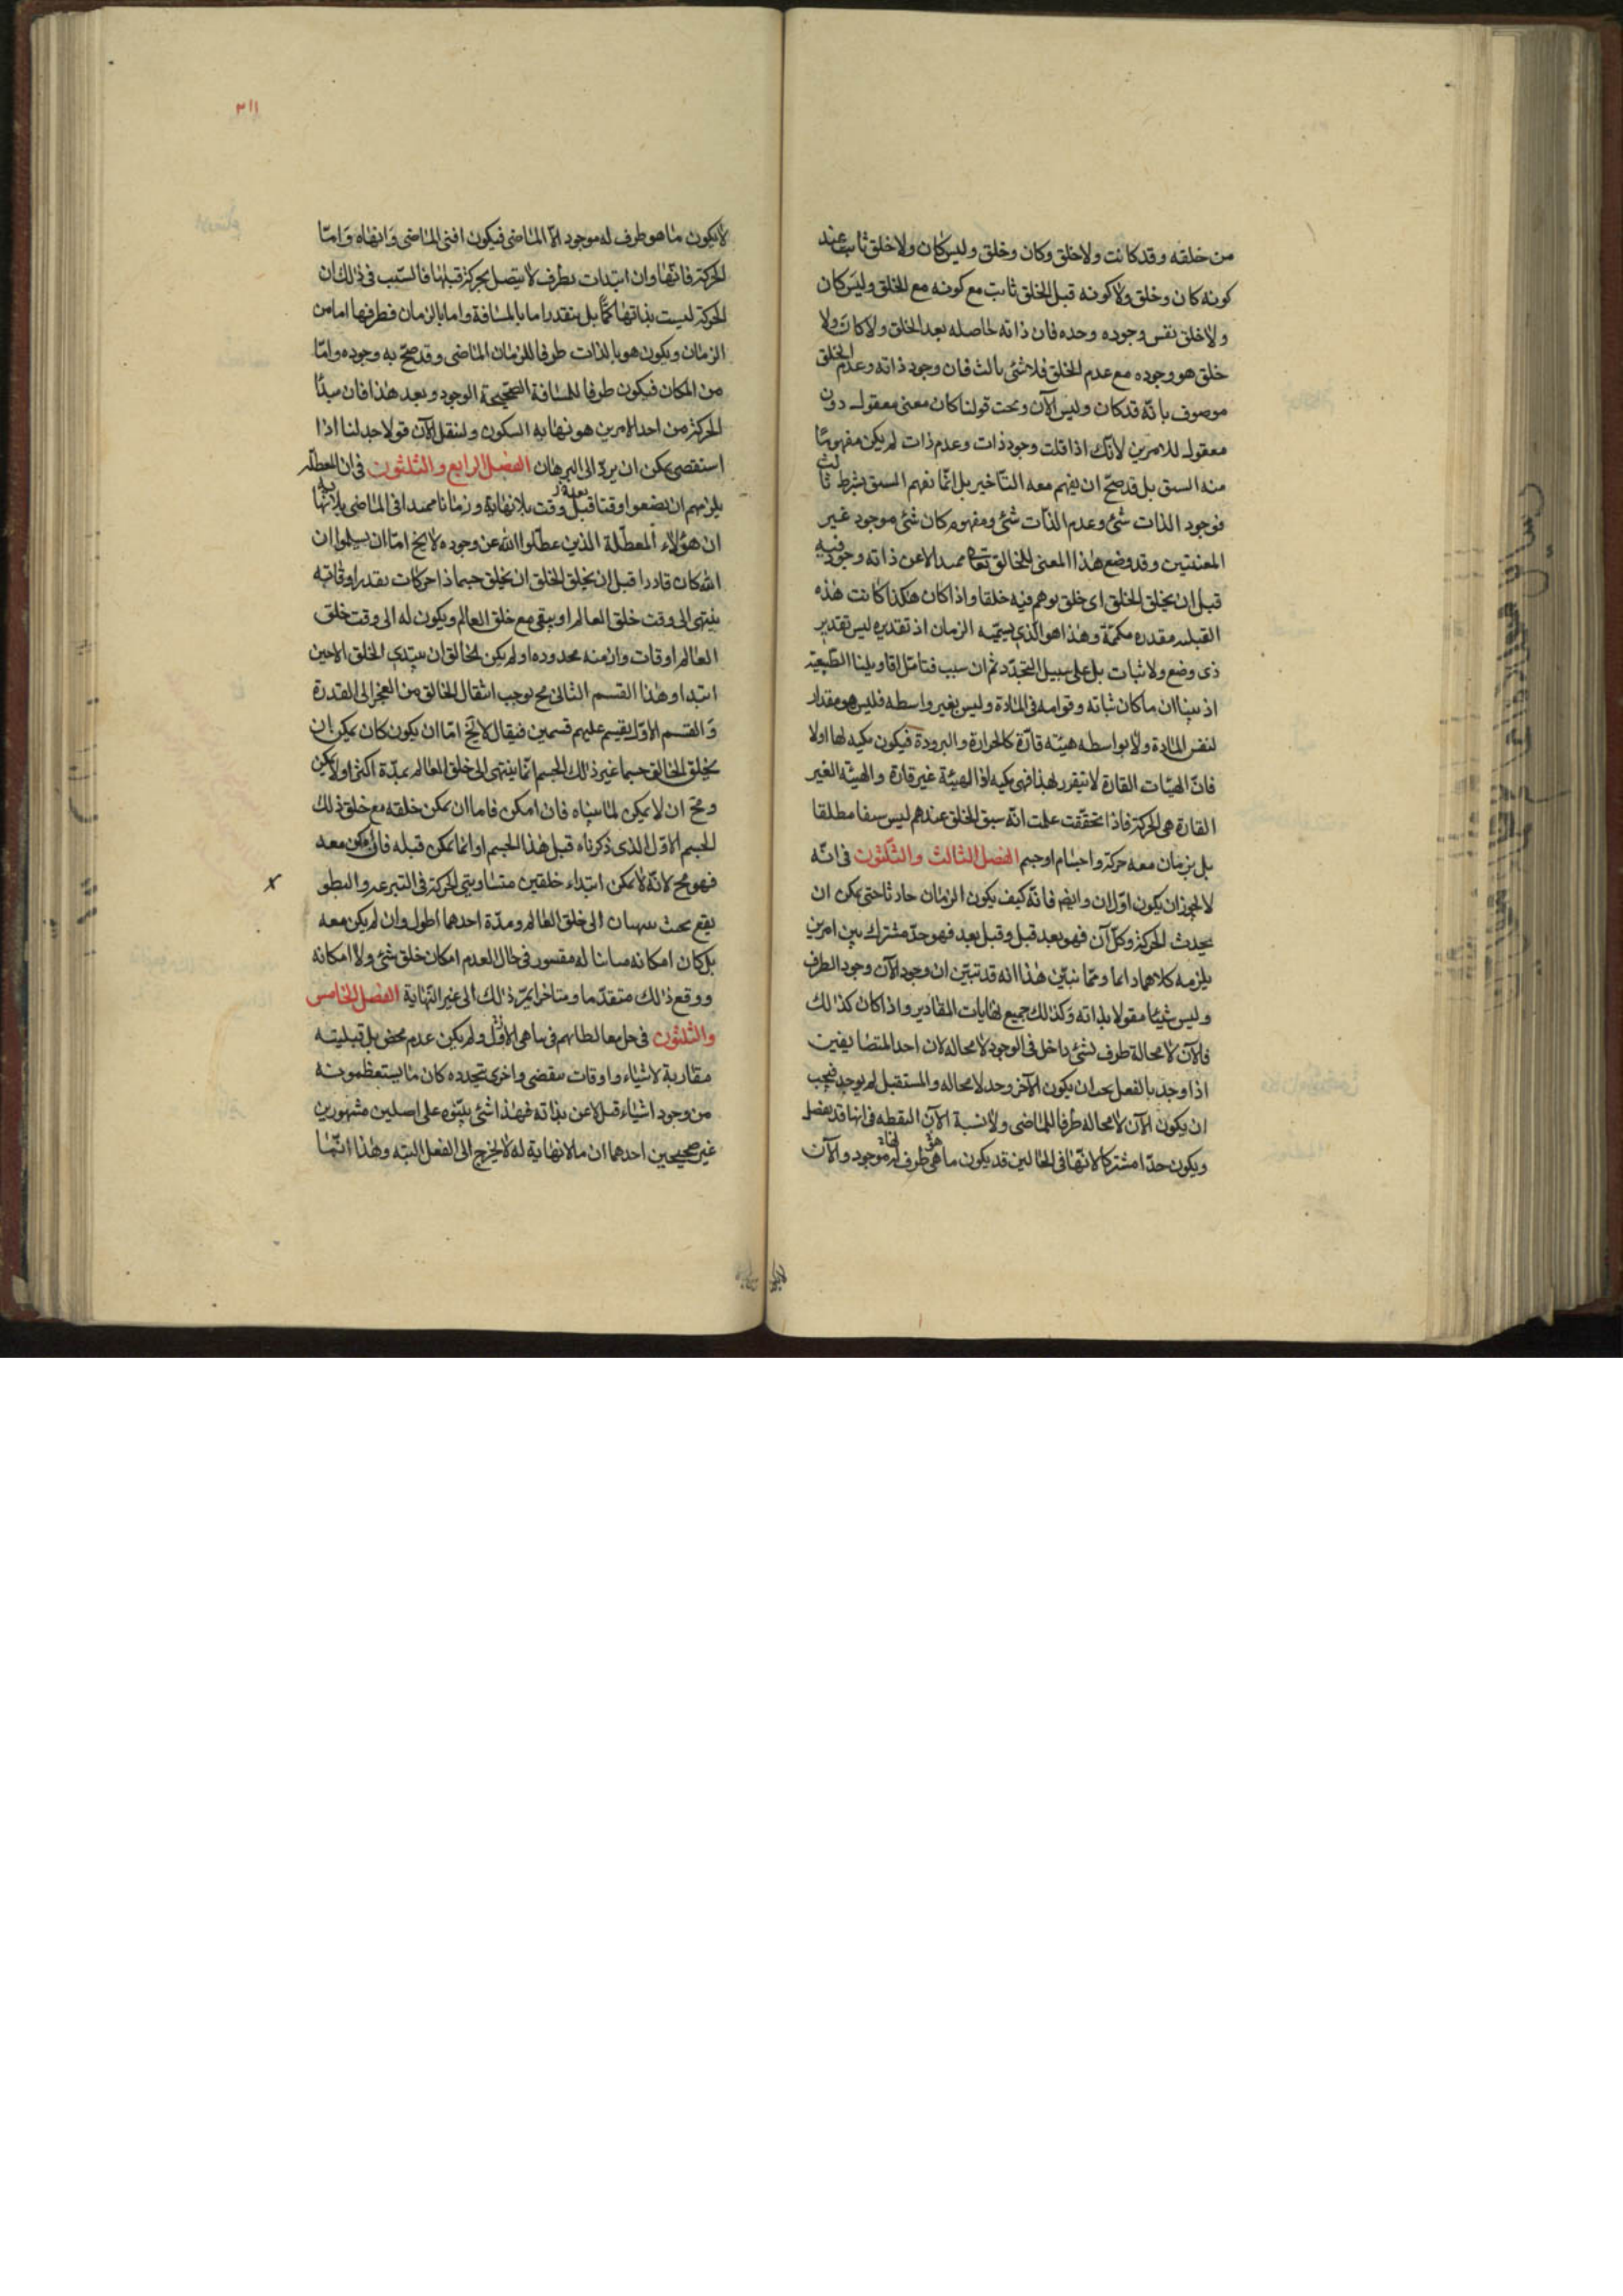 من خلقه وقد كانت ولا خلق وكان وخلق وليس كان ولا خلق ثابتا عند
كونه كان وخلق ولا كونه قبل الخلق ثابت مع كونه مع الخلق وليس كان
ولا خلق نفس وجوده وحده فان ذاته حاصله بعد الخلق ولا كان ولا
خلق هو وجوده مع عدم الخلق فلا شئ ثالث فان وجود ذاته وعدم الخلق
موصوف بانه قد كان وليس الآن وتحت قولنا كان معنى معقول دون
معقول للامرين لأنك اذا قلت وجود ذات وعدم ذات لم يكن مفهوما
منه السبق بل قد صح ان يفهم معه التأخير بل انما نفهم السبق بشرط ثالث
فوجود الذات شئ وعدم الذات شئ ومفهوم كان شئ موجود غير
المعنيين وقد وضع هذا المعنى للخالق تعالى ممتدا لا عن ذاته وجوز فيه
قبل ان يخلق الخلق اى خلق توهم فيه خلقا واذا كان هكذا كانت هذه
القبليه مقدره مكممة وهذا هو الذى يسميه الزمان اذ تقديره ليس تقدير
ذى وضع ولا ثبات بل على سبيل التجدد ثم ان سبب فتأمل اقاويلنا الطبيعية
اذ بينا ان ما كان ثباته وقوامه فى المادة وليس بغير واسطه فليس هو مقدار
لنفس المادة ولا بواسطه هيئة قارة كالحرارة والبرودة فيكون مكيه لها اولا
فان الهيئات القارة لا يتقرر لهذا فهى مكيه اذا لهيئة غير قارة والهيئة الغير
القارة هى الحركة فاذا تحققت علمت انه سبق الخلق عندهم ليس سبقا مطلقا
بل بزمان معه حركة واجسام او جسم الفصل الثالث والثلثون فى انه
لا يجوز ان يكون اول ان وايضا فانه كيف يكون الزمان حادثا حتى يمكن ان
يحدث الحركة وكل آن فهو بعد قبل وقبل بعد فهو حد مشترك بين امرين
يلزمه كلاهما دائما ومما نبين هذا انه قد تبين ان وجود الآن وجود الطرف
وليس شيئا مقولا بذاته وكذلك جميع نهايات المقادير واذا كان كذلك
فالآن لا محالة طرف لشئ داخل فى الوجود لا محاله لان احد المتضايفين
اذا وجد بالفعل يجب ان يكون الآخر وجد لا محاله والمستقبل لم يوجد فيجب
ان يكون الآن لا محاله طرفا للماضى ولا نسبة الآن النقطه فى انها قد يفصل
ويكون حدا مشتركا لانها فى الحالين قد يكون ما هى طرف له موجود والآن
٢١١
لا يكون ما هو طرف له موجود الا الماضى فيكون افنى الماضى وانهاه واما
الحركة فانها وان ابتدات بطرف لا يتصل بحركة قبلها فالسبب فى ذلك ان
الحركة ليست بذاتها كما بل بتقدير اما بالمسافة واما بالزمان فطرفها اما من
الزمان ويكون هو بالذات طرفا للزمان الماضى وقد صح به وجوده واما
من المكان فيكون طرفا للمسافة الصحيحة الوجود وبعد هذا فان مبدأ
الحركة من احد الامرين هو نهاية السكون ولنقل الآن قولا جدلنا اذا
استقصى يمكن ان يرد الى البرهان الفصل الرابع والثلثون فى ان المعطلة
يلزمهم ان يضعوا وقتا قبل وقت بلا نهاية وزمانا ممتدا فى الماضى بلا نهاية
ان هؤلاء المعطلة الذين عطلوا الله عن وجوده لا يخ اما ان يسلموا ان
الله كان قادرا قبل ان يخلق الخلق ان يخلق جسما ذا حركات بقدر اوقاته
ينتهى الى وقت خلق العالم او يبقى مع خلق العالم ويكون له الى وقت خلق
العالم اوقات وازمنه محدوده او لم يكن للخالق ان يبتدى الخلق الا حين
ابتدا وهذا القسم الثانى مح يوجب انتقال الخالق من العجز الى القدرة
والقسم الاول يقسم عليهم قسمين فيقال لا يخ اما ان يكون كان يمكن ان
يخلق الخالق جسما غير ذلك الجسم انما ينتهى الى خلق العالم بمدة اكثر او لا يمكن
ومح ان لا يمكن لما بيناه فان امكن فاما ان يمكن خلقه مع خلق ذلك
الجسم الاول الذى ذكرناه قبل هذا الجسم او انما يمكن قبله فان امكن معه
فهو مح لانه لا يمكن ابتداء خلقين متساويتى الحركة فى السرعة والبطو
يقع بحيث ينتهيان الى خلق العالم ومدة احدهما اطول وان لم يكن معه
بل كان امكانه مباينا له مقسور فى حال العدم امكان خلق شئ ولا امكانه
ووقع ذلك متقدما ومتاخرا يمر ذلك الى غير النهاية الفصل الخامس
والثلثون فى حل مغالطاتهم فى تناهى الاول ولم يكن عدم محض بل قبليته
مقاربة لاشياء واوقات ينقضى واخرى يتجدده كان ما يستعظمونه
من وجود اشياء قبل لا عن بذاته فهذا شئ يبنونه على اصلين مشهورين
غير صحيحين احدهما ان ما لا نهاية له لا يخرج الى الفعل البته وهذا انما